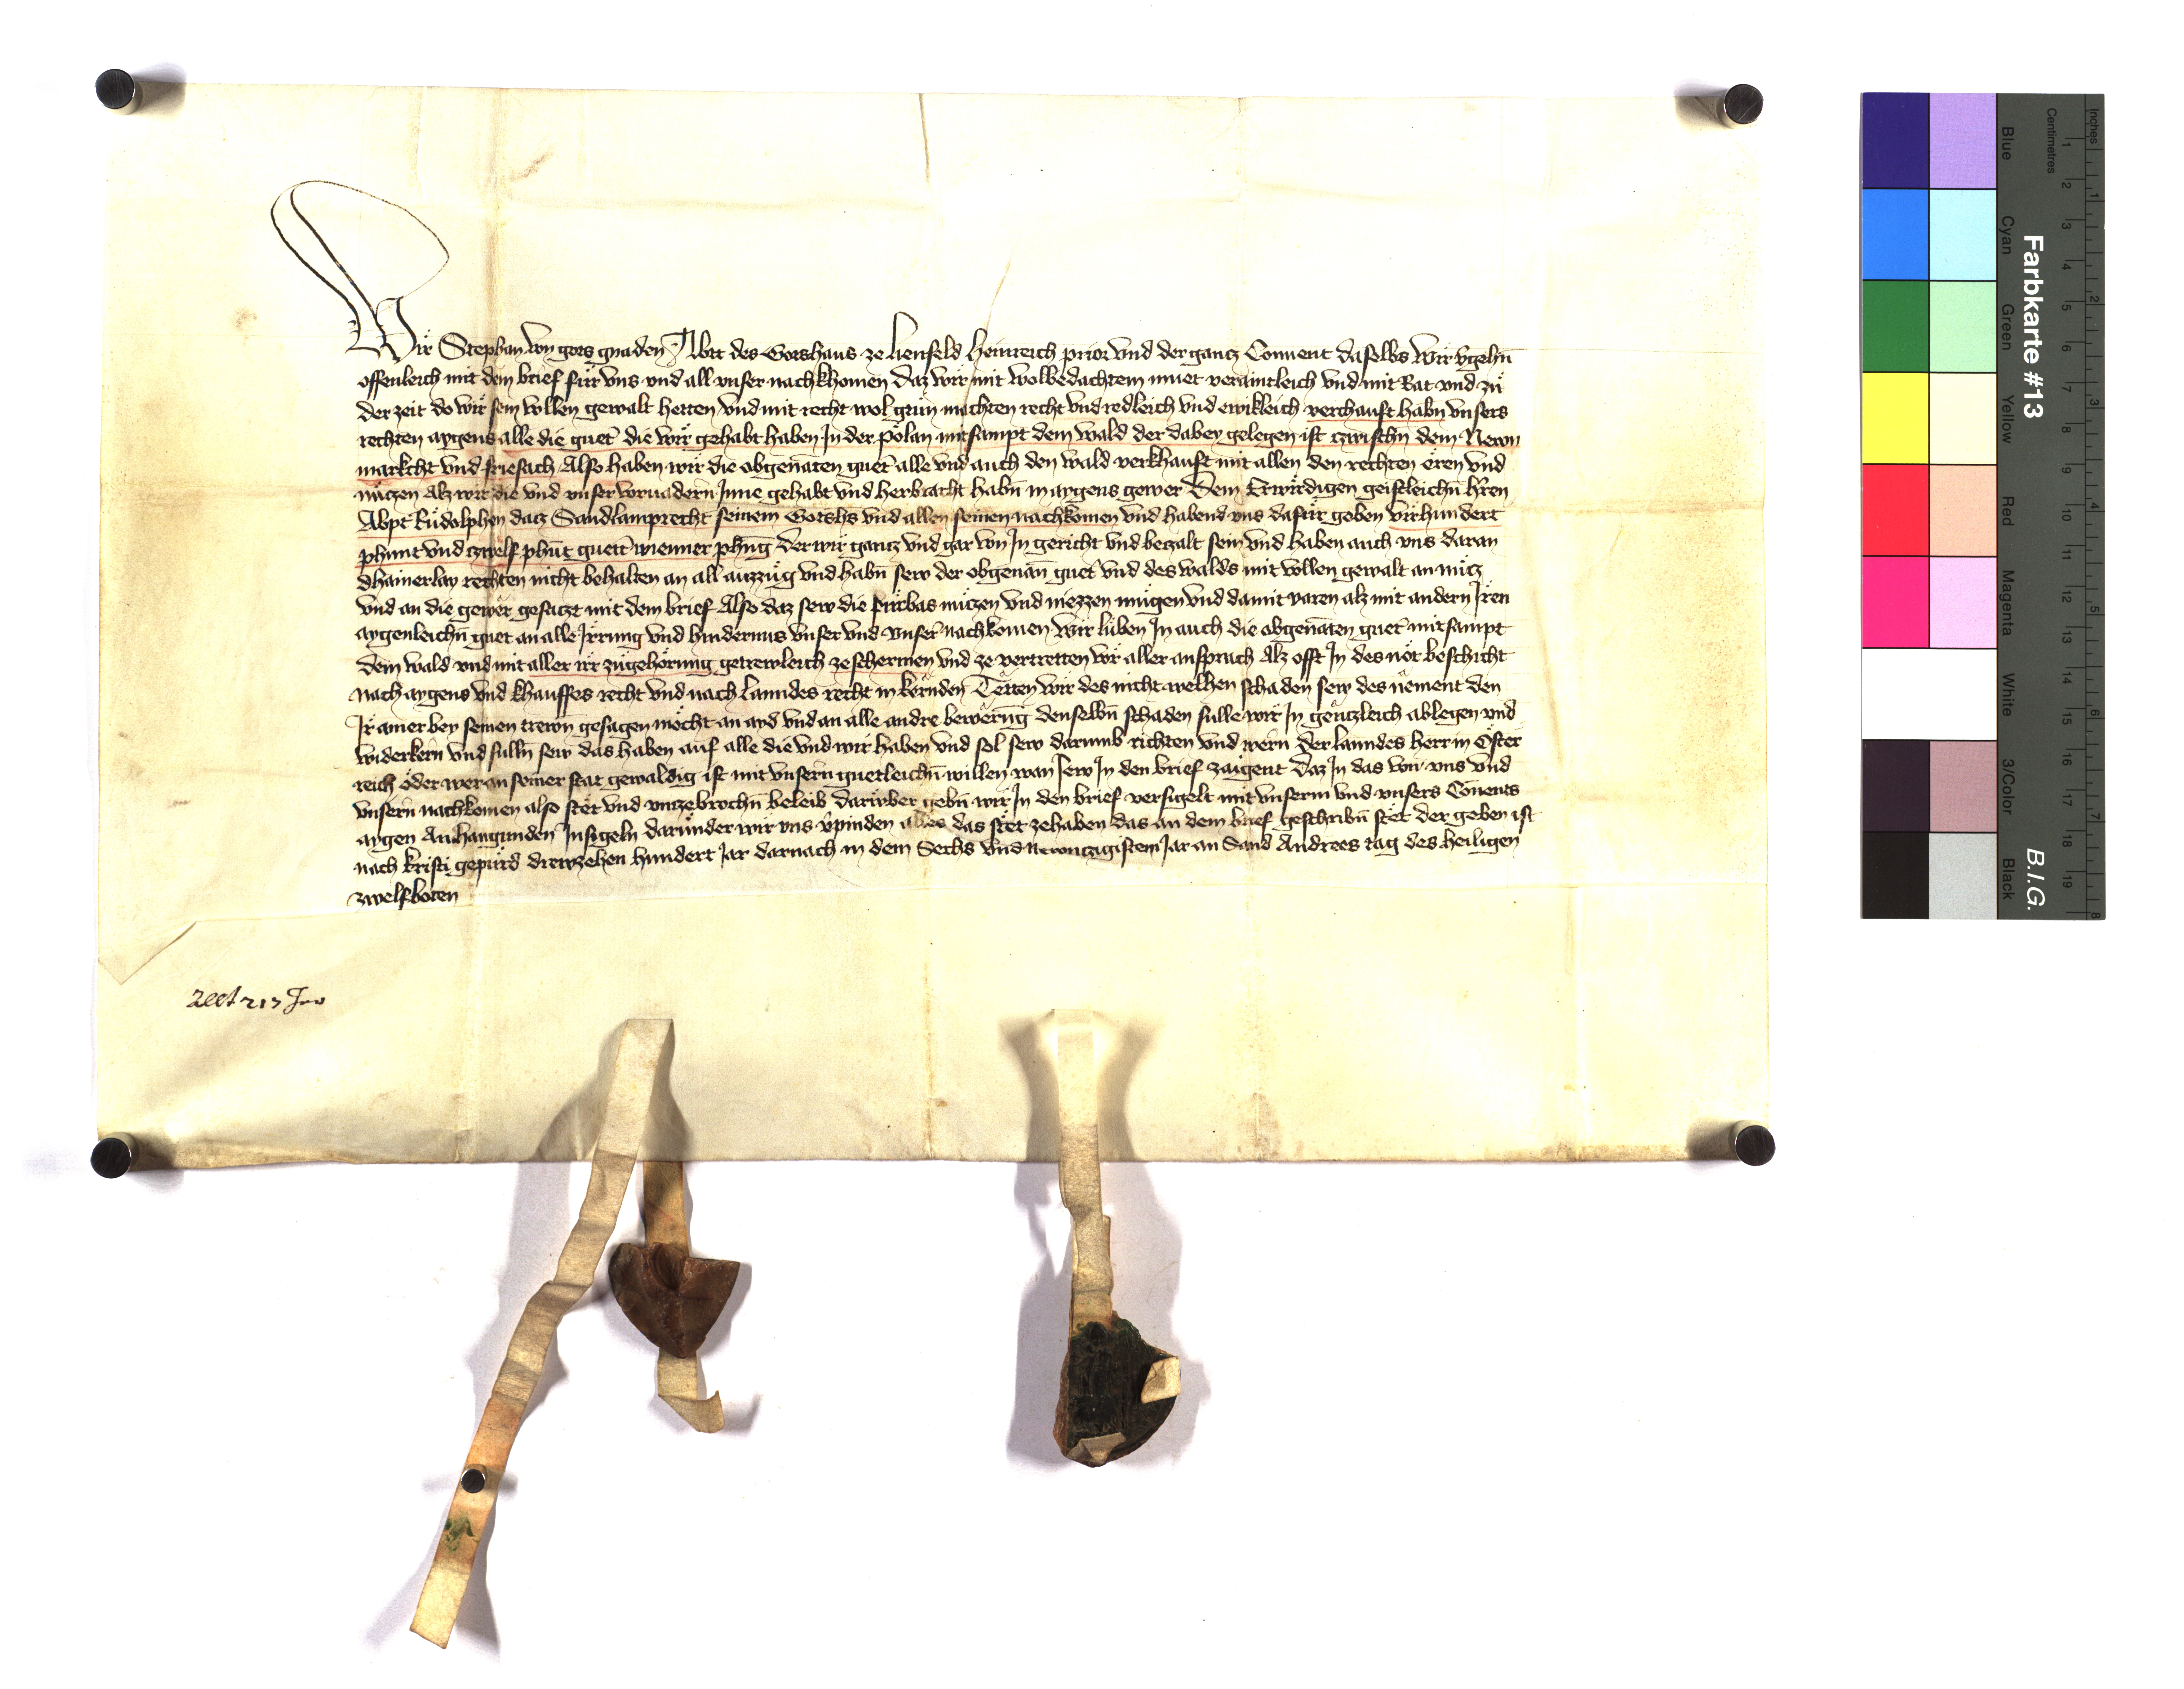 Wir Stephan von gots gnaden Abtt des Gotshaus ze Lienfeld Heinreich prior vnd der gancz Conuent daselbs Wir v̄gehn̄
offenleich mit dem brief für vns vnd all vnser nachkhomen daz wir mit wolbedachtem muet veraintleich vnd mit Rat vnd zu
der zeit do wir sein vollen gewalt hetten vnd mit recht wol getun machten recht vnd redleich vnd ewikleich verchauft habn vnsers
rechten aygens alle die guet die wir gehabt haben In der Pölan mitsampt dem wald der dabey gelegen ist czwischn̄ dem Newn
markcht vnd friesach Also haben wir die obgenāten guet alle vnd auch den wald verkhauft mit allen den rechten eren vnd
nuczen Alz wir die vnd vnser voruadern Inne gehabt vnd herbracht habn̄ in aygens gewer Dem Erwirdigen geistleichn̄ hr̄en
Abpt Rudolphen datz Sandlamprecht seinem Gotshs vnd allen seinen nachkomen vnd habend vns dafür geben virhundert
phunt vnd czwelf phūt guett̄ wienner phn̄g der wir gancz vnd gar von In gericht vnd beczalt sein vnd haben auch vns daran
dhainerlay rechten nicht behalten an all auzzug vnd habn̄ sew der obgenan̄ guet vnd des walds mit vollen gewalt an nucz
vnd an die gewer gesaczt mit dem brief Also daz sew die fürbas nuczen vnd niezzen mugen vnd damit varen alz mit andern Iren
aygenleichn̄ guet an alle Irrung vnd hindernus vnser vnd vnser nachkomen Wir luben In auch die obgenāten guet mitsampt
dem wald vnd mit aller irr zugehörung getrewleich ze schermen vnd ze vertretten vor aller ansprach Alz offt In des not beschicht
nach aygens vnd khauffes recht vnd nach Lanndes recht in kernden Tetten wir des nicht welhen schaden sew des nement den
Ir ainer bey seinen trewn gesagen mocht an ayd vnd an alle andre bewerūg denselbn̄ schaden sulle wir In genczleich ablegen vnd
widerkern vnd sulln̄ sew das haben auf alle die vnd wir haben vnd sol sew darumb richten vnd wern der lanndes herr in Oster
reich oder wer an seiner stat gewaldig ist mit vnsern guetleichn̄ willen wan sew In den brief zaigent Daz In das von vns vnd
vnsern nachkomen also stet vnd vnczebrochn̄ beleib darüber gebn̄ wir In den brief versigelt mit vnserm vnd vnsers Cōuents
aygen Anhangunden Insigeln darunder wir vns v̄pinden alles das stet zehaben das an dem brief geschribn̄ stet der geben ist
nach kristi gepurd drewzehen hundert Jar darnach in dem Sechs vnd newnczigistem Jar an Sand Andrees tag des heiligen
zwelfboten